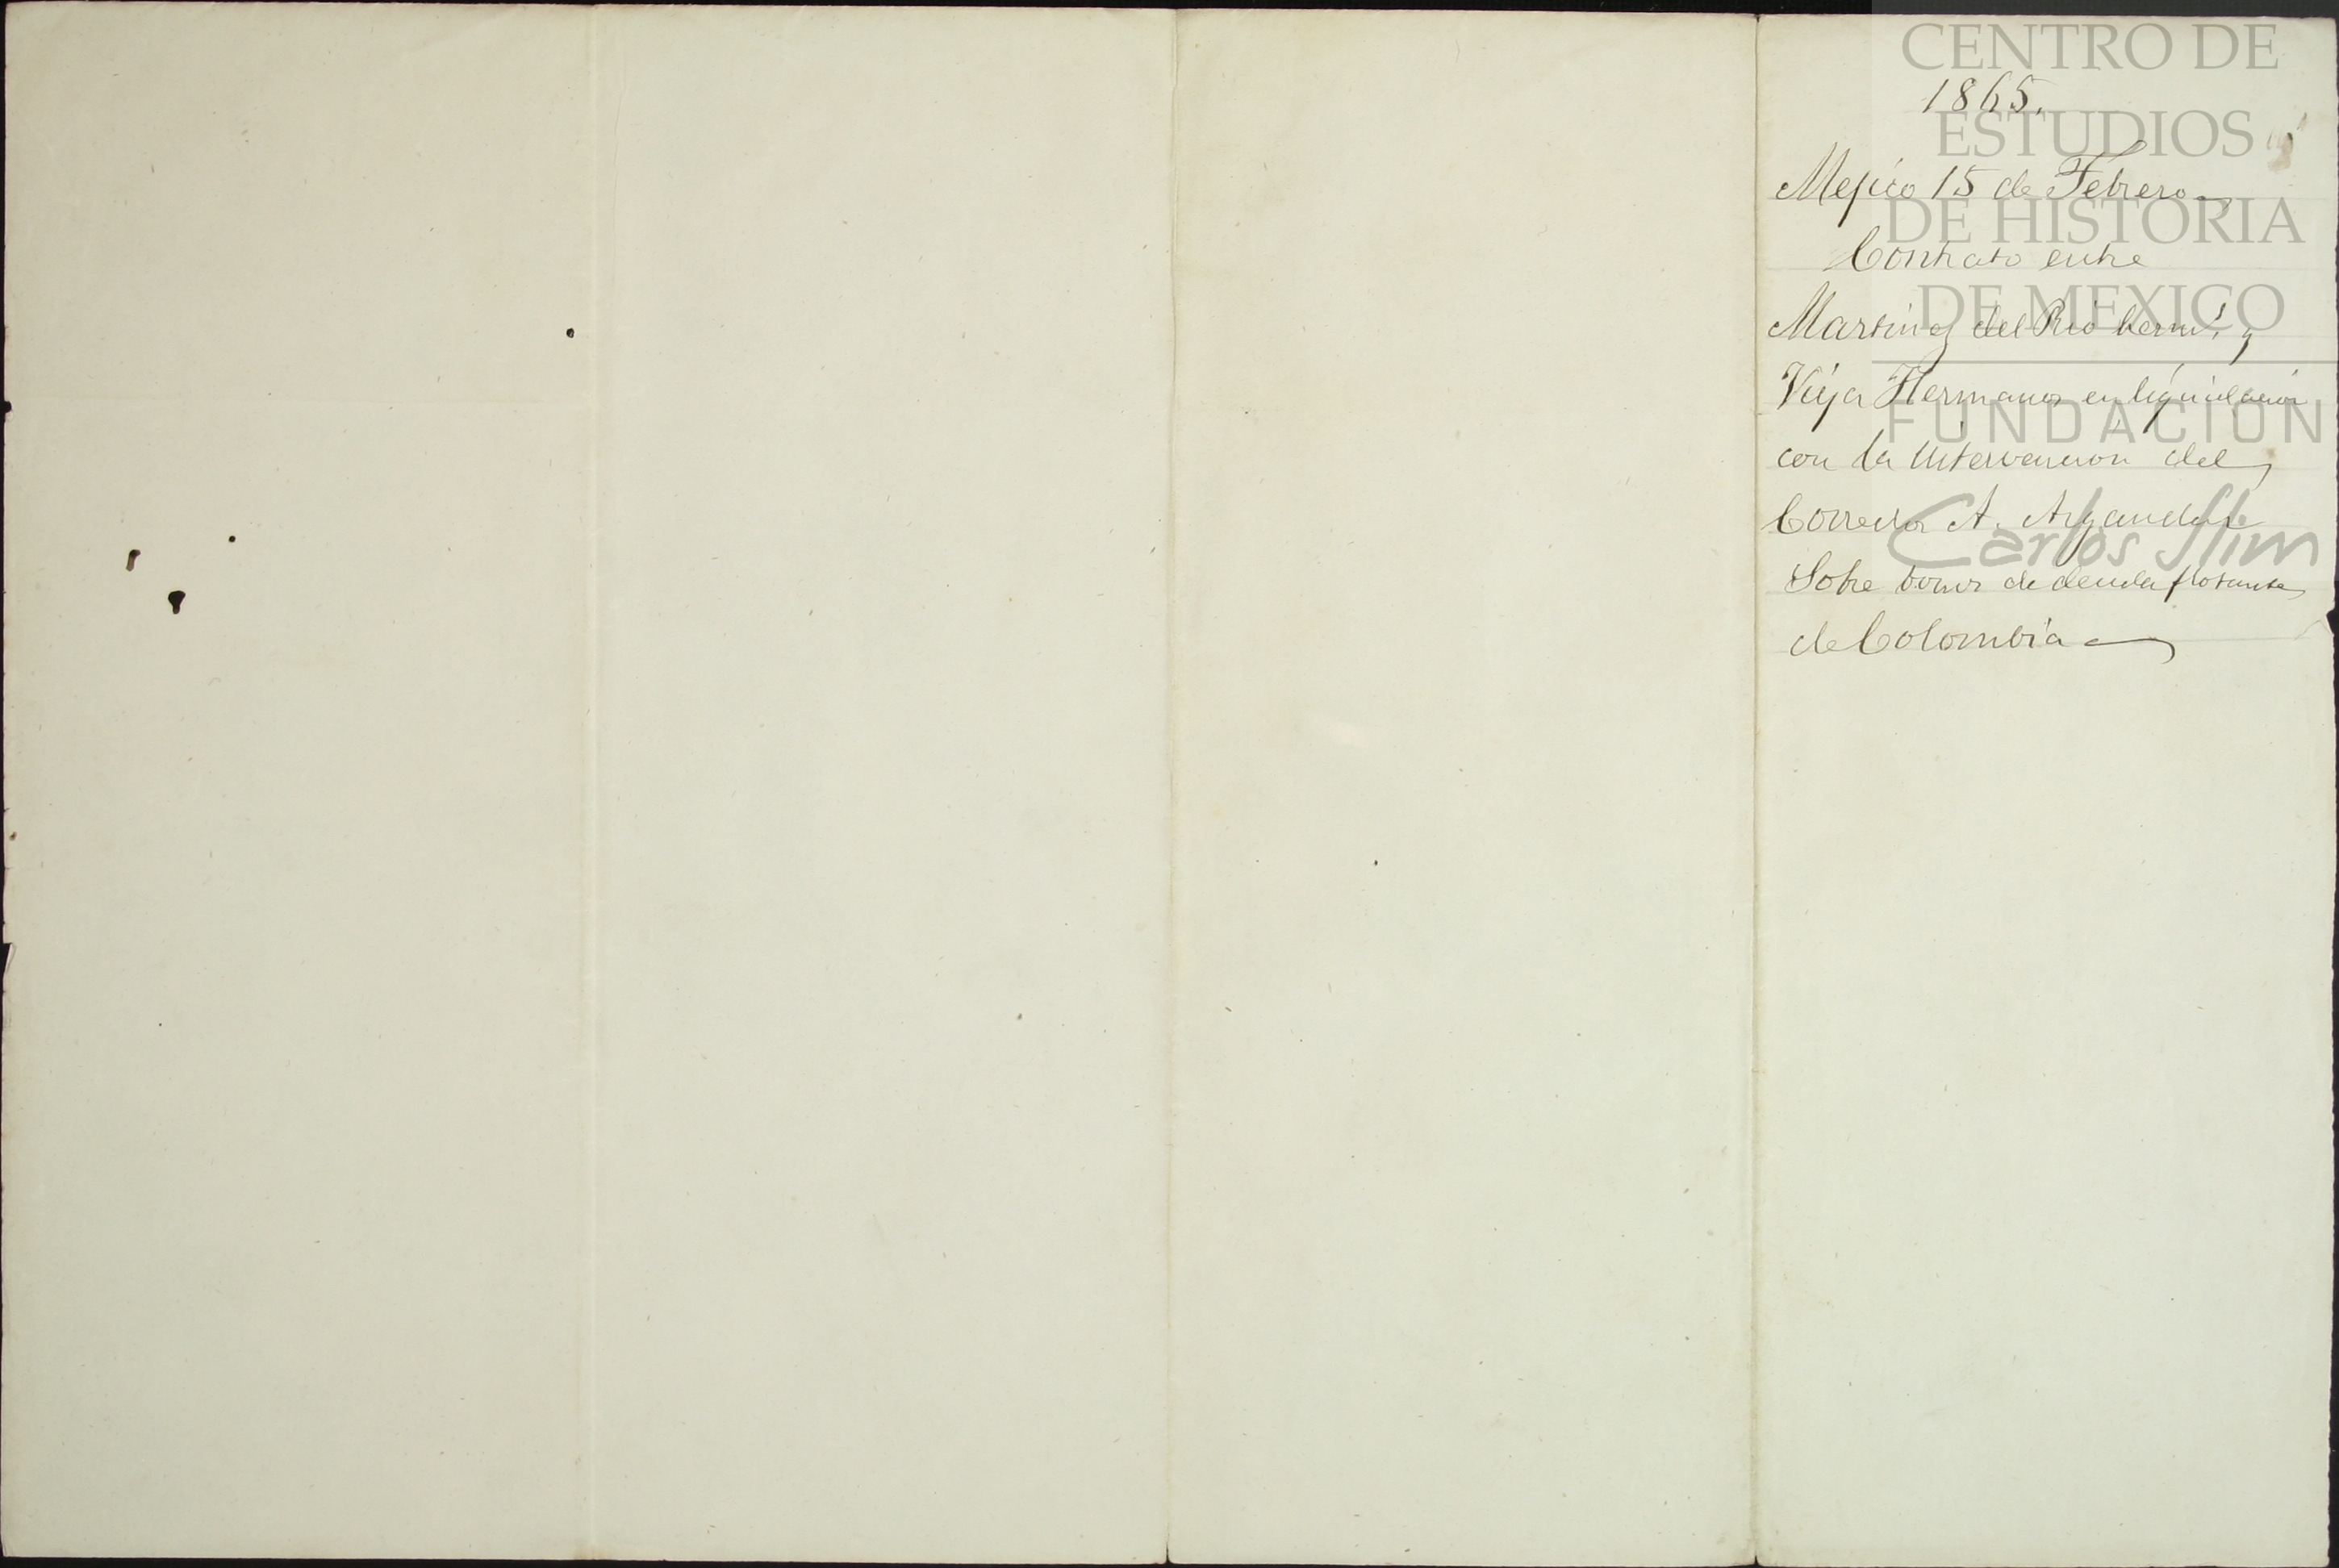 CENTRO DE
ESTUDIOS
DE HISTORIA
DE MEXICO
FUNDACIÓN
Carlos Slim
1865.
Mejico 15 de Febrero
Contrato entre
Martinez del Rio herms. y
Hermanos en liquidacion
con la intervencion del
Corredor A. Argandar
Sobre bonos de deuda flotante
de Colombia